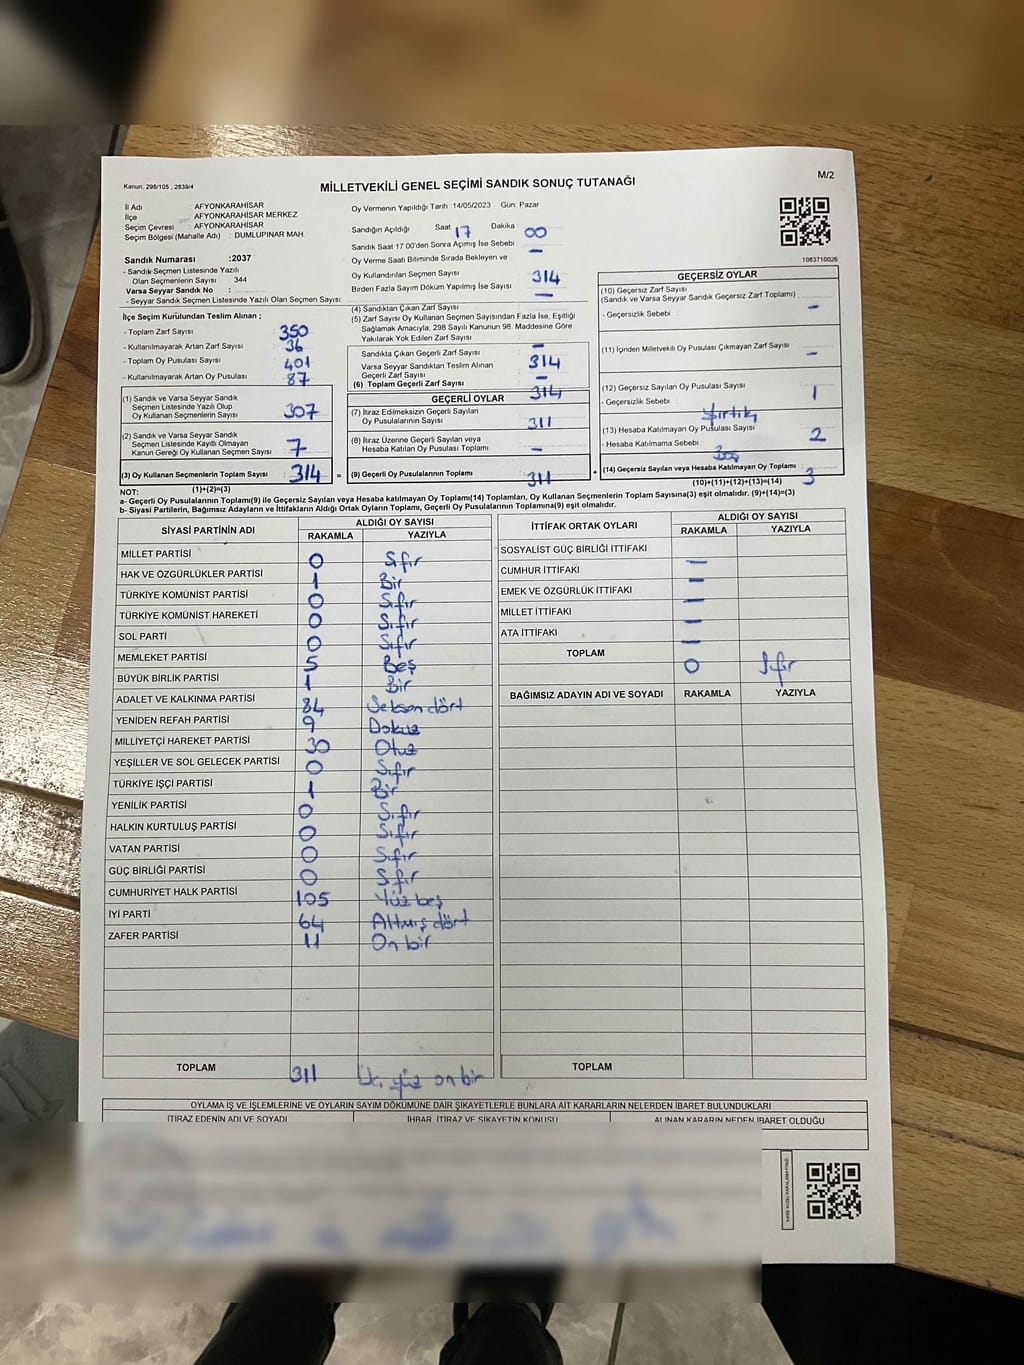 Kanun, 298/105 , 2839/4
MİLLETVEKİLİ GENEL SEÇİMİ SANDIK SONUÇ TUTANAĞI
M/2
İl Adı : AFYONKARAHİSAR
İlçe : AFYONKARAHİSAR MERKEZ
Seçim Çevresi : AFYONKARAHİSAR
Seçim Bölgesi (Mahalle Adı) : DUMLUPINAR MAH.
Sandık Numarası :2037
- Sandık Seçmen Listesinde Yazılı
Olan Seçmenlerin Sayısı : 344
Varsa Seyyar Sandık No :
- Seyyar Sandık Seçmen Listesinde Yazılı Olan Seçmen Sayısı:
Oy Vermenin Yapıldığı Tarih :14/05/2023 Gün: Pazar
Sandığın Açıldığı Saat 17 Dakika 00
Sandık Saat 17 00'den Sonra Açmış İse Sebebi : -
Oy Verme Saati Bitiminde Sırada Bekleyen ve
Oy Kullandırılan Seçmen Sayısı 314
Birden Fazla Sayım Döküm Yapılmış İse Sayısı : -
1083710026
İlçe Seçim Kurulundan Teslim Alınan ;
- Toplam Zarf Sayısı : 350
- Kullanılmayarak Artan Zarf Sayısı : 36
- Toplam Oy Pusulası Sayısı : 401
- Kullanılmayarak Artan Oy Pusulası : 87
(1) Sandık ve Varsa Seyyar Sandık
Seçmen Listesinde Yazılı Olup
Oy Kullanan Seçmenlerin Sayısı : 307
(2) Sandık ve Varsa Seyyar Sandık
Seçmen Listesinde Kayıtlı Olmayan
Kanun Gereği Oy Kullanan Seçmen Sayısı : 7
(3) Oy Kullanan Seçmenlerin Toplam Sayısı : 314 =
(1)+(2)=(3)
(4) Sandıktan Çıkan Zarf Sayısı
(5) Zarf Sayısı Oy Kullanan Seçmen Sayısından Fazla İse, Eşitliği
Sağlamak Amacıyla, 298 Sayılı Kanunun 98. Maddesine Göre
Yakılarak Yok Edilen Zarf Sayısı : -
Sandıkta Çıkan Geçerli Zarf Sayısı : 314
Varsa Seyyar Sandıktan Teslim Alınan
Geçerli Zarf Sayısı : -
(6) Toplam Geçerli Zarf Sayısı : 314
GEÇERLİ OYLAR
(7) İtiraz Edilmeksizin Geçerli Sayılan
Oy Pusulasının Sayısı : 311
(8) İtiraz Üzerine Geçerli Sayılan veya
Hesaba Katılan Oy Pusulası Toplamı : -
(9) Geçerli Oy Pusulalarının Toplamı : 311 +
GEÇERSİZ OYLAR
(10) Geçersiz Zarf Sayısı
(Sandık ve Varsa Seyyar Sandık Geçersiz Zarf Toplamı) : -
- Geçersizlik Sebebi :
(11) İçinden Milletvekili Oy Pusulası Çıkmayan Zarf Sayısı : -
(12) Geçersiz Sayılan Oy Pusulası Sayısı : 1
- Geçersizlik Sebebi : Yırtık
(13) Hesaba Katılmayan Oy Pusulası Sayısı : 2
- Hesaba Katılmama Sebebi : Boş
(14) Geçersiz Sayılan veya Hesaba Katılmayan Oy Toplamı : 3
(10)+(11)+(12)+(13)=(14)
NOT:
a- Geçerli Oy Pusulalarının Toplamı(9) ile Geçersiz Sayılan veya Hesaba katılmayan Oy Toplamı(14) Toplamları, Oy Kullanan Seçmenlerin Toplam Sayısına(3) eşit olmalıdır. (9)+(14)=(3)
b- Siyasi Partilerin, Bağımsız Adayların ve İttifakların Aldığı Ortak Oyların Toplamı, Geçerli Oy Pusulalarının Toplamına(9) eşit olmalıdır.
SİYASİ PARTİNİN ADI
ALDIĞI OY SAYISI
RAKAMLA YAZIYLA
MİLLET PARTİSİ 0 Sıfır
HAK VE ÖZGÜRLÜKLER PARTİSİ 1 Bir
TÜRKİYE KOMÜNİST PARTİSİ 0 Sıfır
TÜRKİYE KOMÜNİST HAREKETİ 0 Sıfır
SOL PARTİ 0 Sıfır
MEMLEKET PARTİSİ 5 Beş
BÜYÜK BİRLİK PARTİSİ 1 Bir
ADALET VE KALKINMA PARTİSİ 84 Seksen dört
YENİDEN REFAH PARTİSİ 9 Dokuz
MİLLİYETÇİ HAREKET PARTİSİ 30 Otuz
YEŞİLLER VE SOL GELECEK PARTİSİ 0 Sıfır
TÜRKİYE İŞÇİ PARTİSİ 1 Bir
YENİLİK PARTİSİ 0 Sıfır
HALKIN KURTULUŞ PARTİSİ 0 Sıfır
VATAN PARTİSİ 0 Sıfır
GÜÇ BİRLİĞİ PARTİSİ 0 Sıfır
CUMHURİYET HALK PARTİSİ 105 Yüz beş
İYİ PARTİ 64 Altmış dört
ZAFER PARTİSİ 11 On bir
TOPLAM 311 Üç yüz on bir
İTTİFAK ORTAK OYLARI
ALDIĞI OY SAYISI
RAKAMLA YAZIYLA
SOSYALİST GÜÇ BİRLİĞİ İTTİFAKI -
CUMHUR İTTİFAKI -
EMEK VE ÖZGÜRLÜK İTTİFAKI -
MİLLET İTTİFAKI -
ATA İTTİFAKI -
TOPLAM 0 Sıfır
BAĞIMSIZ ADAYIN ADI VE SOYADI RAKAMLA YAZIYLA
TOPLAM
OYLAMA İŞ VE İŞLEMLERİNE VE OYLARIN SAYIM DÖKÜMÜNE DAİR ŞİKAYETLERLE BUNLARA AİT KARARLARIN NELERDEN İBARET BULUNDUKLARI
İTİRAZ EDENİN ADI VE SOYADI İHBAR, İTİRAZ VE ŞİKAYETİN KONUSU ALINAN KARARIN NEDEN İBARET OLDUĞU